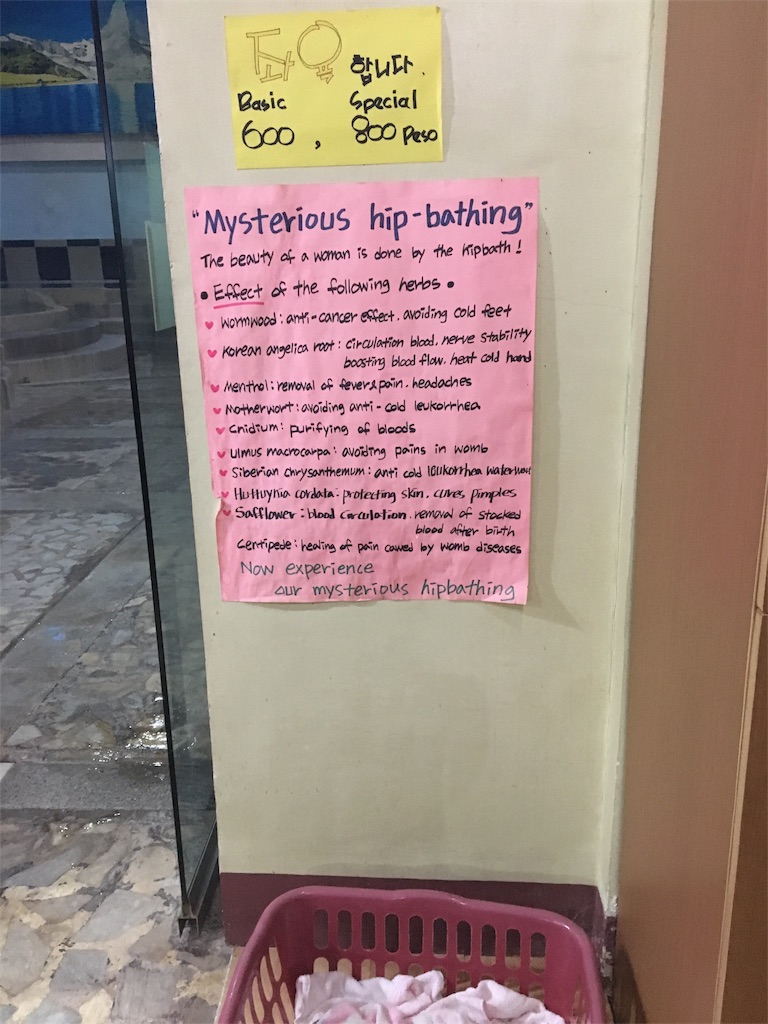 좌욕 합니다.
Basic Special
600 , 800 Peso
"Mysterious hip-bathing"
The beauty of a woman is done by the hipbath!
• Effect of the following herbs •
♥ Wormwood: anti-cancer effect. avoiding cold feet
♥ Korean angelica root: circulation blood, nerve stability
boosting blood flow. heat cold hand
♥ Menthol: removal of fever&pain. headaches
♥ Motherwort: avoiding anti-cold leukorrhea
♥ Cnidium: purifying of bloods
♥ Ulmus macrocarpa: avoiding pains in womb
♥ Siberian chrysanthemum: anti cold leukorrhea
♥ Huttuynia cordata: protecting skin. cures pimples
♥ Safflower: blood circulation. removal of stocked
blood after birth
Centipede: healing of pain caused by womb diseases
Now experience
our mysterious hipbathing